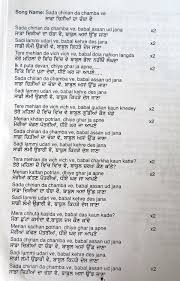 Song Name: Sada chirian da chamba ve
ਸਾਡਾ ਚਿੜੀਆਂ ਦਾ ਚੰਬਾ ਵੇ
Sada chirian da chamba ve, babal assan ud jana x2
ਸਾਡਾ ਚਿੜੀਆਂ ਦਾ ਚੰਬਾ ਵੇ, ਬਾਬਲ ਅਸਾਂ ਉੱਡ ਜਾਣਾ
Sadi lammi udari ve, babal kehre des jana x2
ਸਾਡੀ ਲੰਮੀ ਉਡਾਰੀ ਵੇ, ਬਾਬਲ ਕਿਹੜੇ ਦੇਸ ਜਾਣਾ
Tere mehlan de vich vich ve, babal dola nahion langda
ਤੇਰੇ ਮਹਿਲਾਂ ਦੇ ਵਿੱਚ ਵਿੱਚ ਵੇ, ਬਾਬਲ ਡੋਲਾ ਨਹੀਂਓਂ ਲੰਘਦਾ
Ik itt puta devan, dhiye ghar ja apne x2
ਇੱਕ ਇੱਟ ਪੁਟਾ ਦੇਵਾਂ, ਧੀਏ ਘਰ ਜਾ ਆਪਣੇ
Sada chirian da chamba ve, babal assan ud jana
ਸਾਡਾ ਚਿੜੀਆਂ ਦਾ ਚੰਬਾ ਵੇ, ਬਾਬਲ ਅਸਾਂ ਉੱਡ ਜਾਣਾ
Sadi lammi udari ve, babal kehre des jana
ਸਾਡੀ ਲੰਮੀ ਉਡਾਰੀ ਵੇ, ਬਾਬਲ ਕਿਹੜੇ ਦੇਸ ਜਾਣਾ
Tere mehlan de vich vich ve, babal gudian kaun khedey x2
ਤੇਰੇ ਮਹਿਲਾਂ ਦੇ ਵਿੱਚ ਵਿੱਚ ਵੇ, ਬਾਬਲ ਗੁੱਡੀਆਂ ਕੌਣ ਖੇਡੇ
Merian khedan potrian, dhiye ghar ja apne x2
ਮੇਰੀਆਂ ਖੇਡਣ ਪੋਤਰੀਆਂ, ਧੀਏ ਘਰ ਜਾ ਆਪਣੇ
Sada chirian da chamba ve, babal assan ud jana
ਸਾਡਾ ਚਿੜੀਆਂ ਦਾ ਚੰਬਾ ਵੇ, ਬਾਬਲ ਅਸਾਂ ਉੱਡ ਜਾਣਾ
Sadi lammi udari ve, babal kehre des jana
ਸਾਡੀ ਲੰਮੀ ਉਡਾਰੀ ਵੇ, ਬਾਬਲ ਕਿਹੜੇ ਦੇਸ ਜਾਣਾ
Tere mehlan de vich vich ve, babal charkha kaun katte? x2
ਤੇਰੇ ਮਹਿਲਾਂ ਦੇ ਵਿੱਚ ਵਿੱਚ ਵੇ, ਬਾਬਲ ਚਰਖਾ ਕੌਣ ਕੱਤੇ
Merian kattan potrian, dhiye ghar ja apne x2
ਮੇਰੀਆਂ ਕੱਤਣ ਪੋਤਰੀਆਂ, ਧੀਏ ਘਰ ਜਾ ਆਪਣੇ
Sada chirian da chamba ve, babal assan ud jana
ਸਾਡਾ ਚਿੜੀਆਂ ਦਾ ਚੰਬਾ ਵੇ, ਬਾਬਲ ਅਸਾਂ ਉੱਡ ਜਾਣਾ
Sadi lammi udari ve, babal kehre des jana
ਸਾਡੀ ਲੰਮੀ ਉਡਾਰੀ ਵੇ, ਬਾਬਲ ਕਿਹੜੇ ਦੇਸ ਜਾਣਾ
Mera chhuta kasida ve, babal das kaun kade? x2
ਮੇਰਾ ਛੁੱਟਾ ਕਸੀਦਾ ਵੇ, ਬਾਬਲ ਦੱਸ ਕੌਣ ਕੱਢੇ
Merian kadhan potrian, dhiye ghar ja apne x2
ਮੇਰੀਆਂ ਕੱਢਣ ਪੋਤਰੀਆਂ, ਧੀਏ ਘਰ ਜਾ ਆਪਣੇ
Sada chirian da chamba ve, babal assan ud jana x2
ਸਾਡਾ ਚਿੜੀਆਂ ਦਾ ਚੰਬਾ ਵੇ, ਬਾਬਲ ਅਸਾਂ ਉੱਡ ਜਾਣਾ